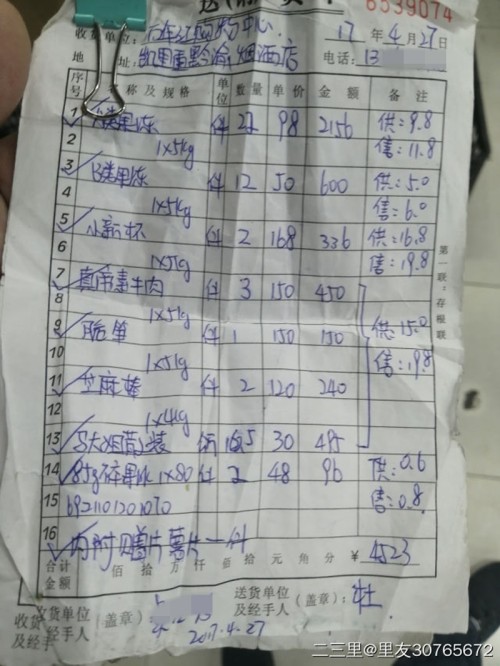 6539074
收货单位:
17 年 4 月 27 日
地 址: 凯里 黔渝烟酒店
电话: 13
序号 名称及规格 单位 数量 单价 金额 备注
1 果冻 件 22 98 2156 供:9.8
2 1x5kg 售:11.8
3 B类果冻 件 12 50 600 供:5.0
4 1x5kg 售:6.0
5 小新杯 件 2 168 336 供:16.8
6 1x5kg 售:19.8
7 素牛肉 件 3 150 450
8 1x5kg
9 件 1 150 150 供:15.0
10 1x5kg 售:19.8
11 芝麻棒 件 2 120 240
12 1x4kg
13 装 16.5 30 495
14 85g碎果冰 1x80 件 2 48 96 供:0.6
15 6921101201070 售:0.8
16 内附 薯片一件
合计金额 佰 拾 万 仟 佰 拾 元 角 分 ¥ 4523
第一联:存根联
收货单位及经手人(盖章):
送货单位及经手人(盖章):
2017.4.27
二三里@里友30765672